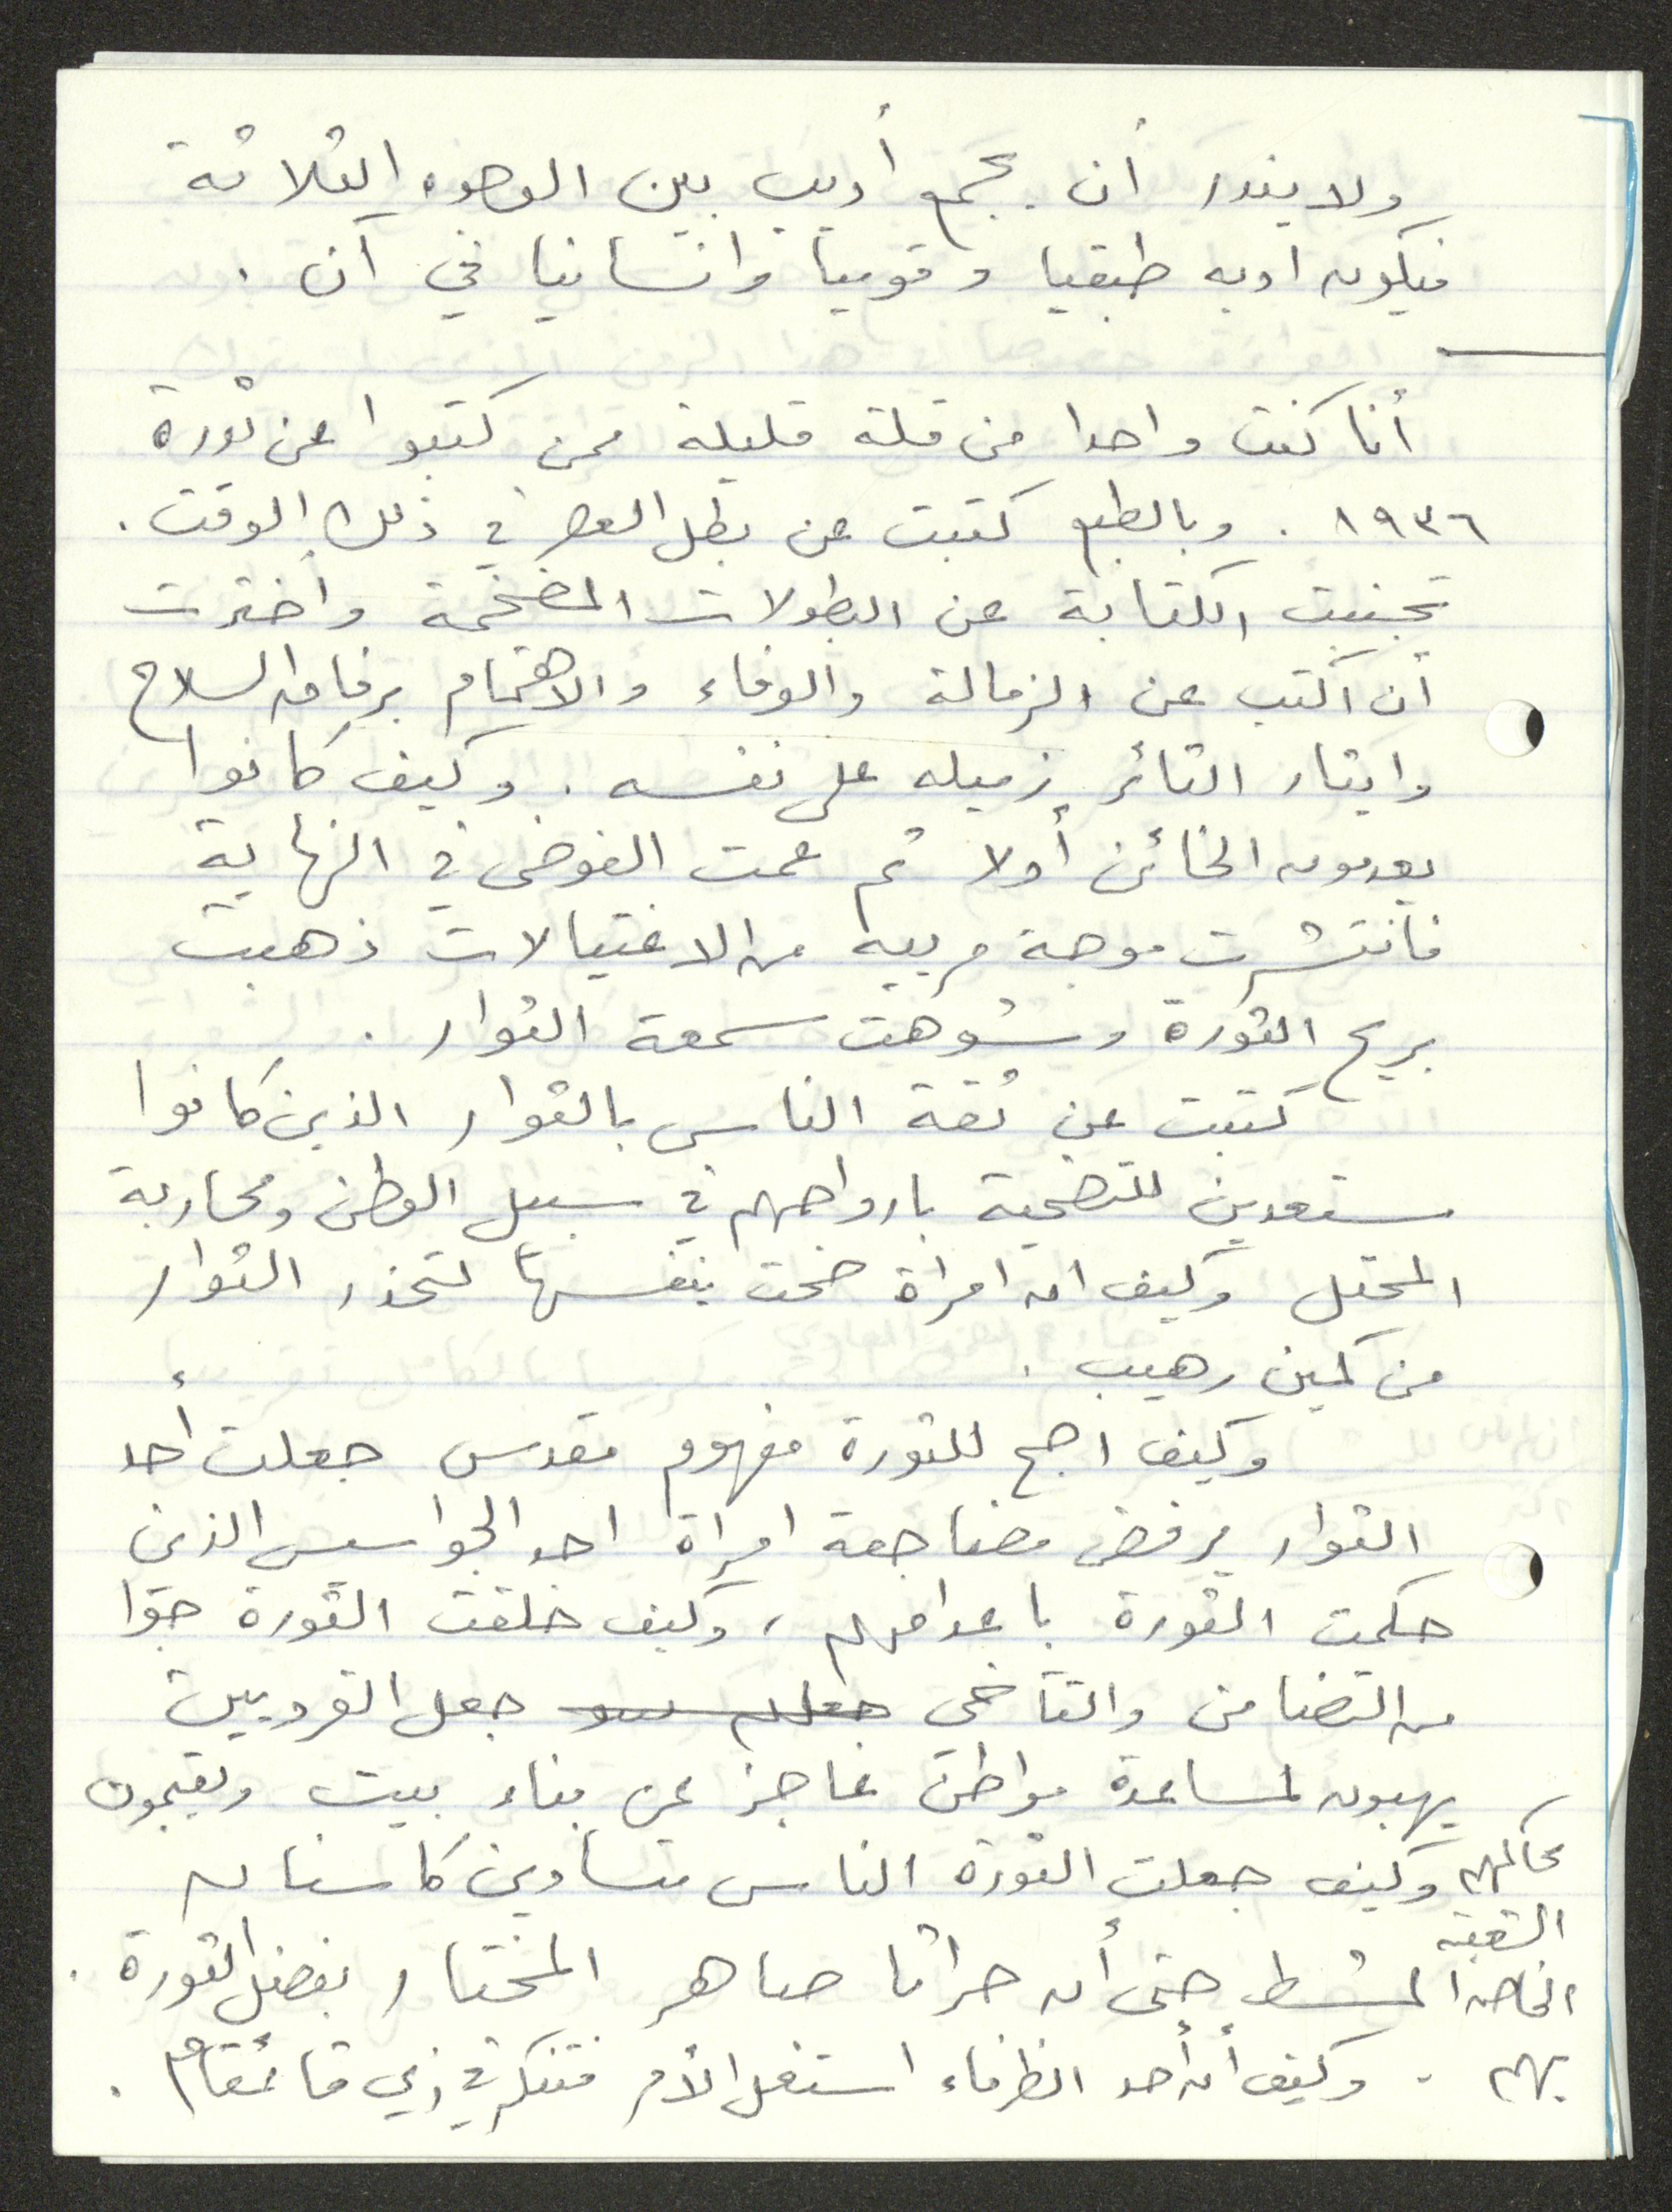 ولا يندر أن يجمع أديب بين الوجوه الثلاثة
فيكون ادبه طبقيا وقوميا وانسانيا في آن .
أنا كنت واحدا من قلة قليلة ممن كتبوا عن ثورة
١٩٣٦ . وبالطبع كتبت عن بطل العصر في ذلك الوقت .
تجنبت الكتابة عن البطولات المضخمة واخترت
أن اكتب عن الزمالة والوفاء والاهتمام برفاق السلاح
وايثار الثائر زميله على نفسه . وكيف كانوا
يعدمون الخائن أولا ثم عمت الفوضى في النهاية
فانتشرت موجة مريبه من الاغتيالات ذهبت
بريح الثورة وشوهت سمعة الثوار .
كتبت عن ثقة الناس بالثوار الذين كانوا
مستعدين للتضحية بارواحهم في سبيل الوطن ومحاربة
المحتل وكيف ان امرأة ضحت بنفسها لتحذر الثوار
من كمين رهيب .
وكيف اصبح للثورة مفهوم مقدس جعلت أحد
الثوار يرفض مضاجعة امرأة احد الجواسيس الذين
حكمت الثورة باعدامهم ، وكيف خلقت الثورة جوّا
من التضامن والتآخي جعل القرويين
يهبون لمساعدة مواطن عاجز عن بناء بيت ويقيمون
محاكمهم الشعبية الخاصة بهم . وكيف جعلت الثورة الناس متساوين كاسنان
المشط حتى أن حراثا صاهر المختار بفضل الثورة .
وكيف أن أحد الظرفاء استغل الأمر فتنكر في زي قائمقام .